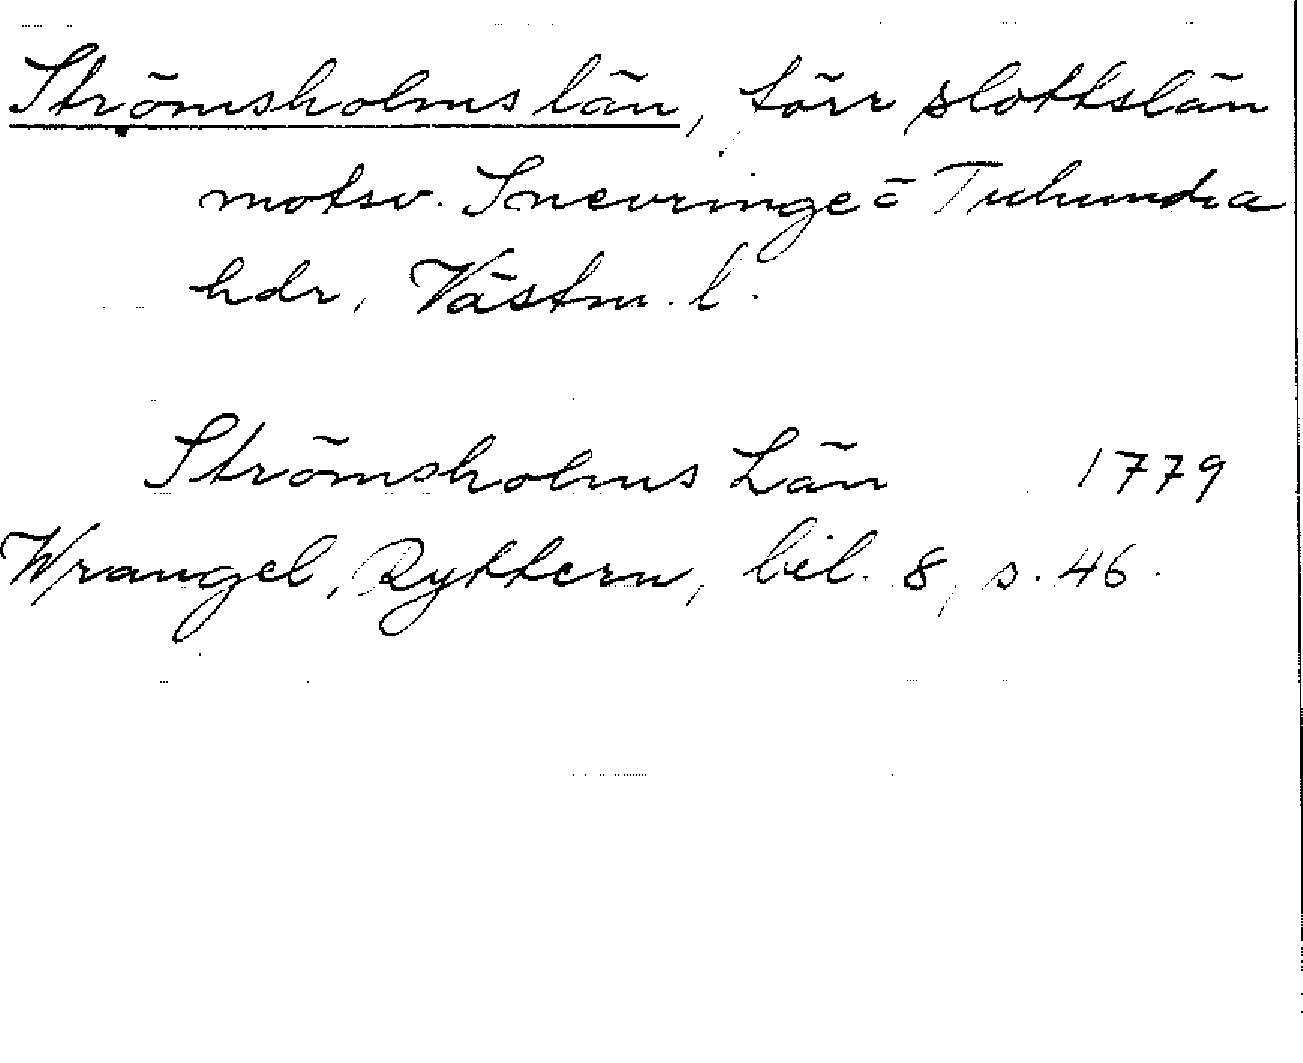 Strömsholms län, förr slottslän
motsv. Snevringe o Tuhundra
hdr, Västm. l.
Strömsholms Län 1779
Wrangel, Ryttern, bil. 8, s. 46.